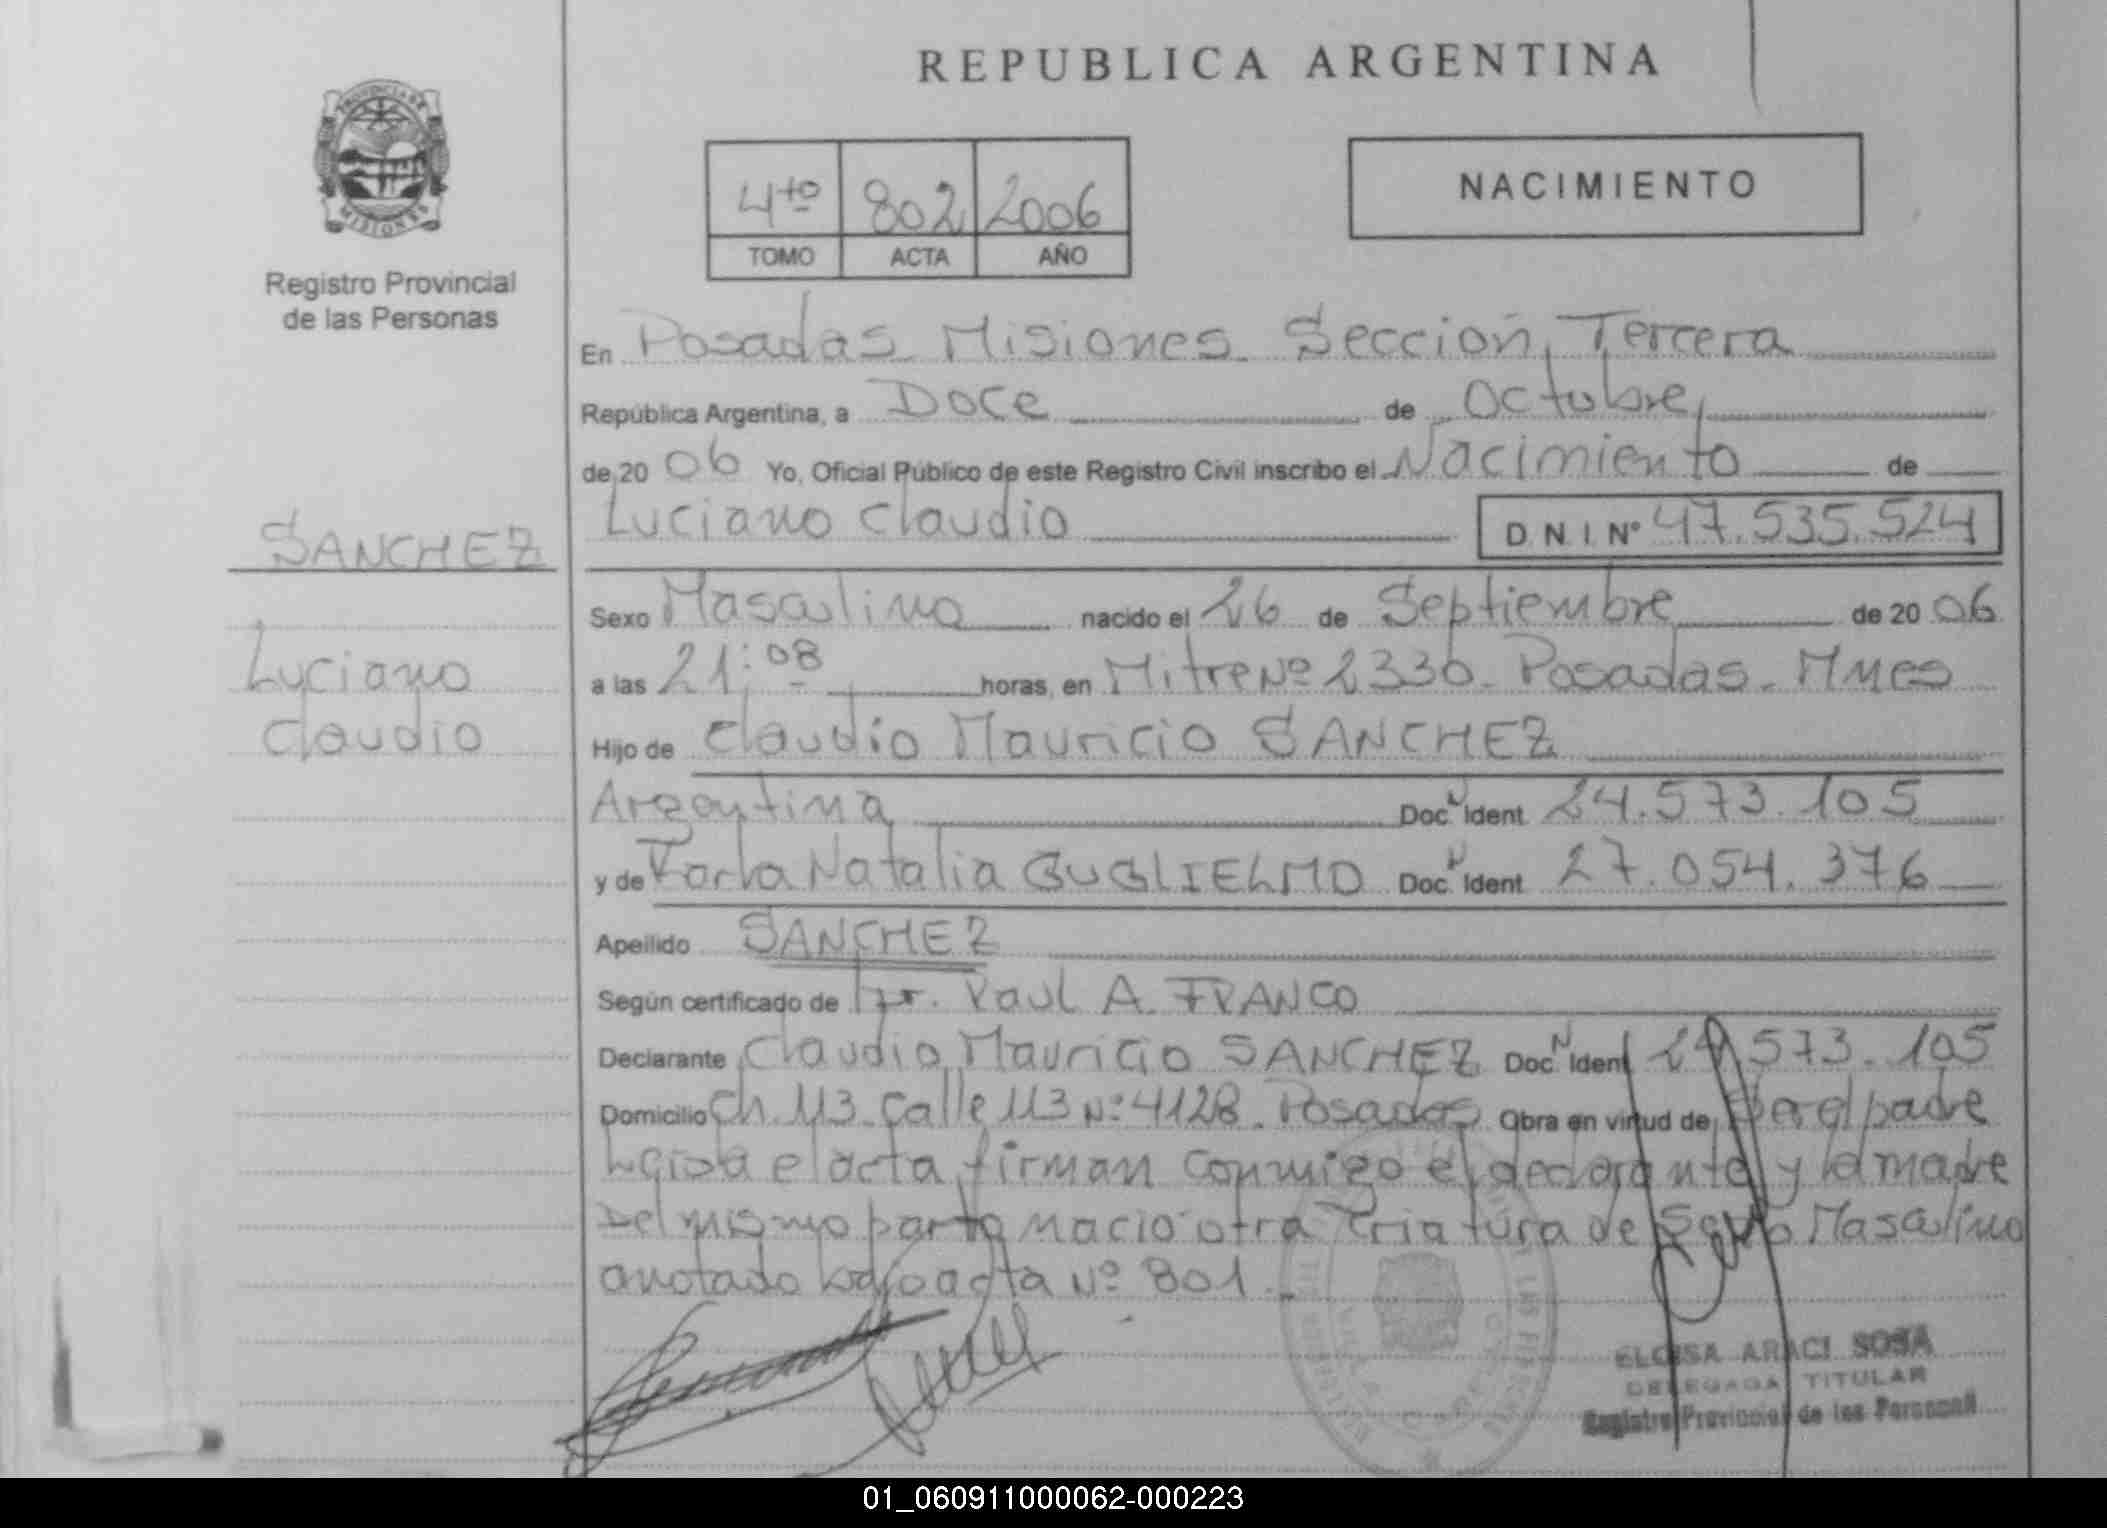 REPUBLICA ARGENTINA
PROVINCIA DE
MISIONES
Registro Provincial
de las Personas
4to 802 2006
TOMO ACTA AÑO
NACIMIENTO
En Posadas Misiones Sección Tercera
República Argentina, a Doce de Octubre
de 20 06 Yo, Oficial Público de este Registro Civil inscribo el Nacimiento de
Luciano Claudio D.N.I. Nº 47.535.524
SANCHEZ
Luciano
Claudio
Sexo Masculino nacido el 26 de Septiembre de 20 06
a las 21:08 horas, en Mitre Nº 2330 - Posadas - Mnes
Hijo de Claudio Mauricio SANCHEZ
Argentina Doc. N Ident 24.573.105
y de Karla Natalia GUGLIELMO Doc. N Ident 27.054.376
Apellido SANCHEZ
Según certificado de Dr. Raul A. FRANCO
Declarante Claudio Mauricio SANCHEZ Doc. N Ident 24.573.105
Domicilio Ch. 113 Calle 113 Nº 4128 - Posadas Obra en virtud de Ser el padre
Leida el acta firman conmigo el declarante y la madre
Del mismo parto nacio otra Criatura de Sexo Masculino
anotado bajo acta Nº 801.
ELOISA ARACI SOSA
DELEGADA TITULAR
Registro Provincial de las Personas
01_060911000062-000223